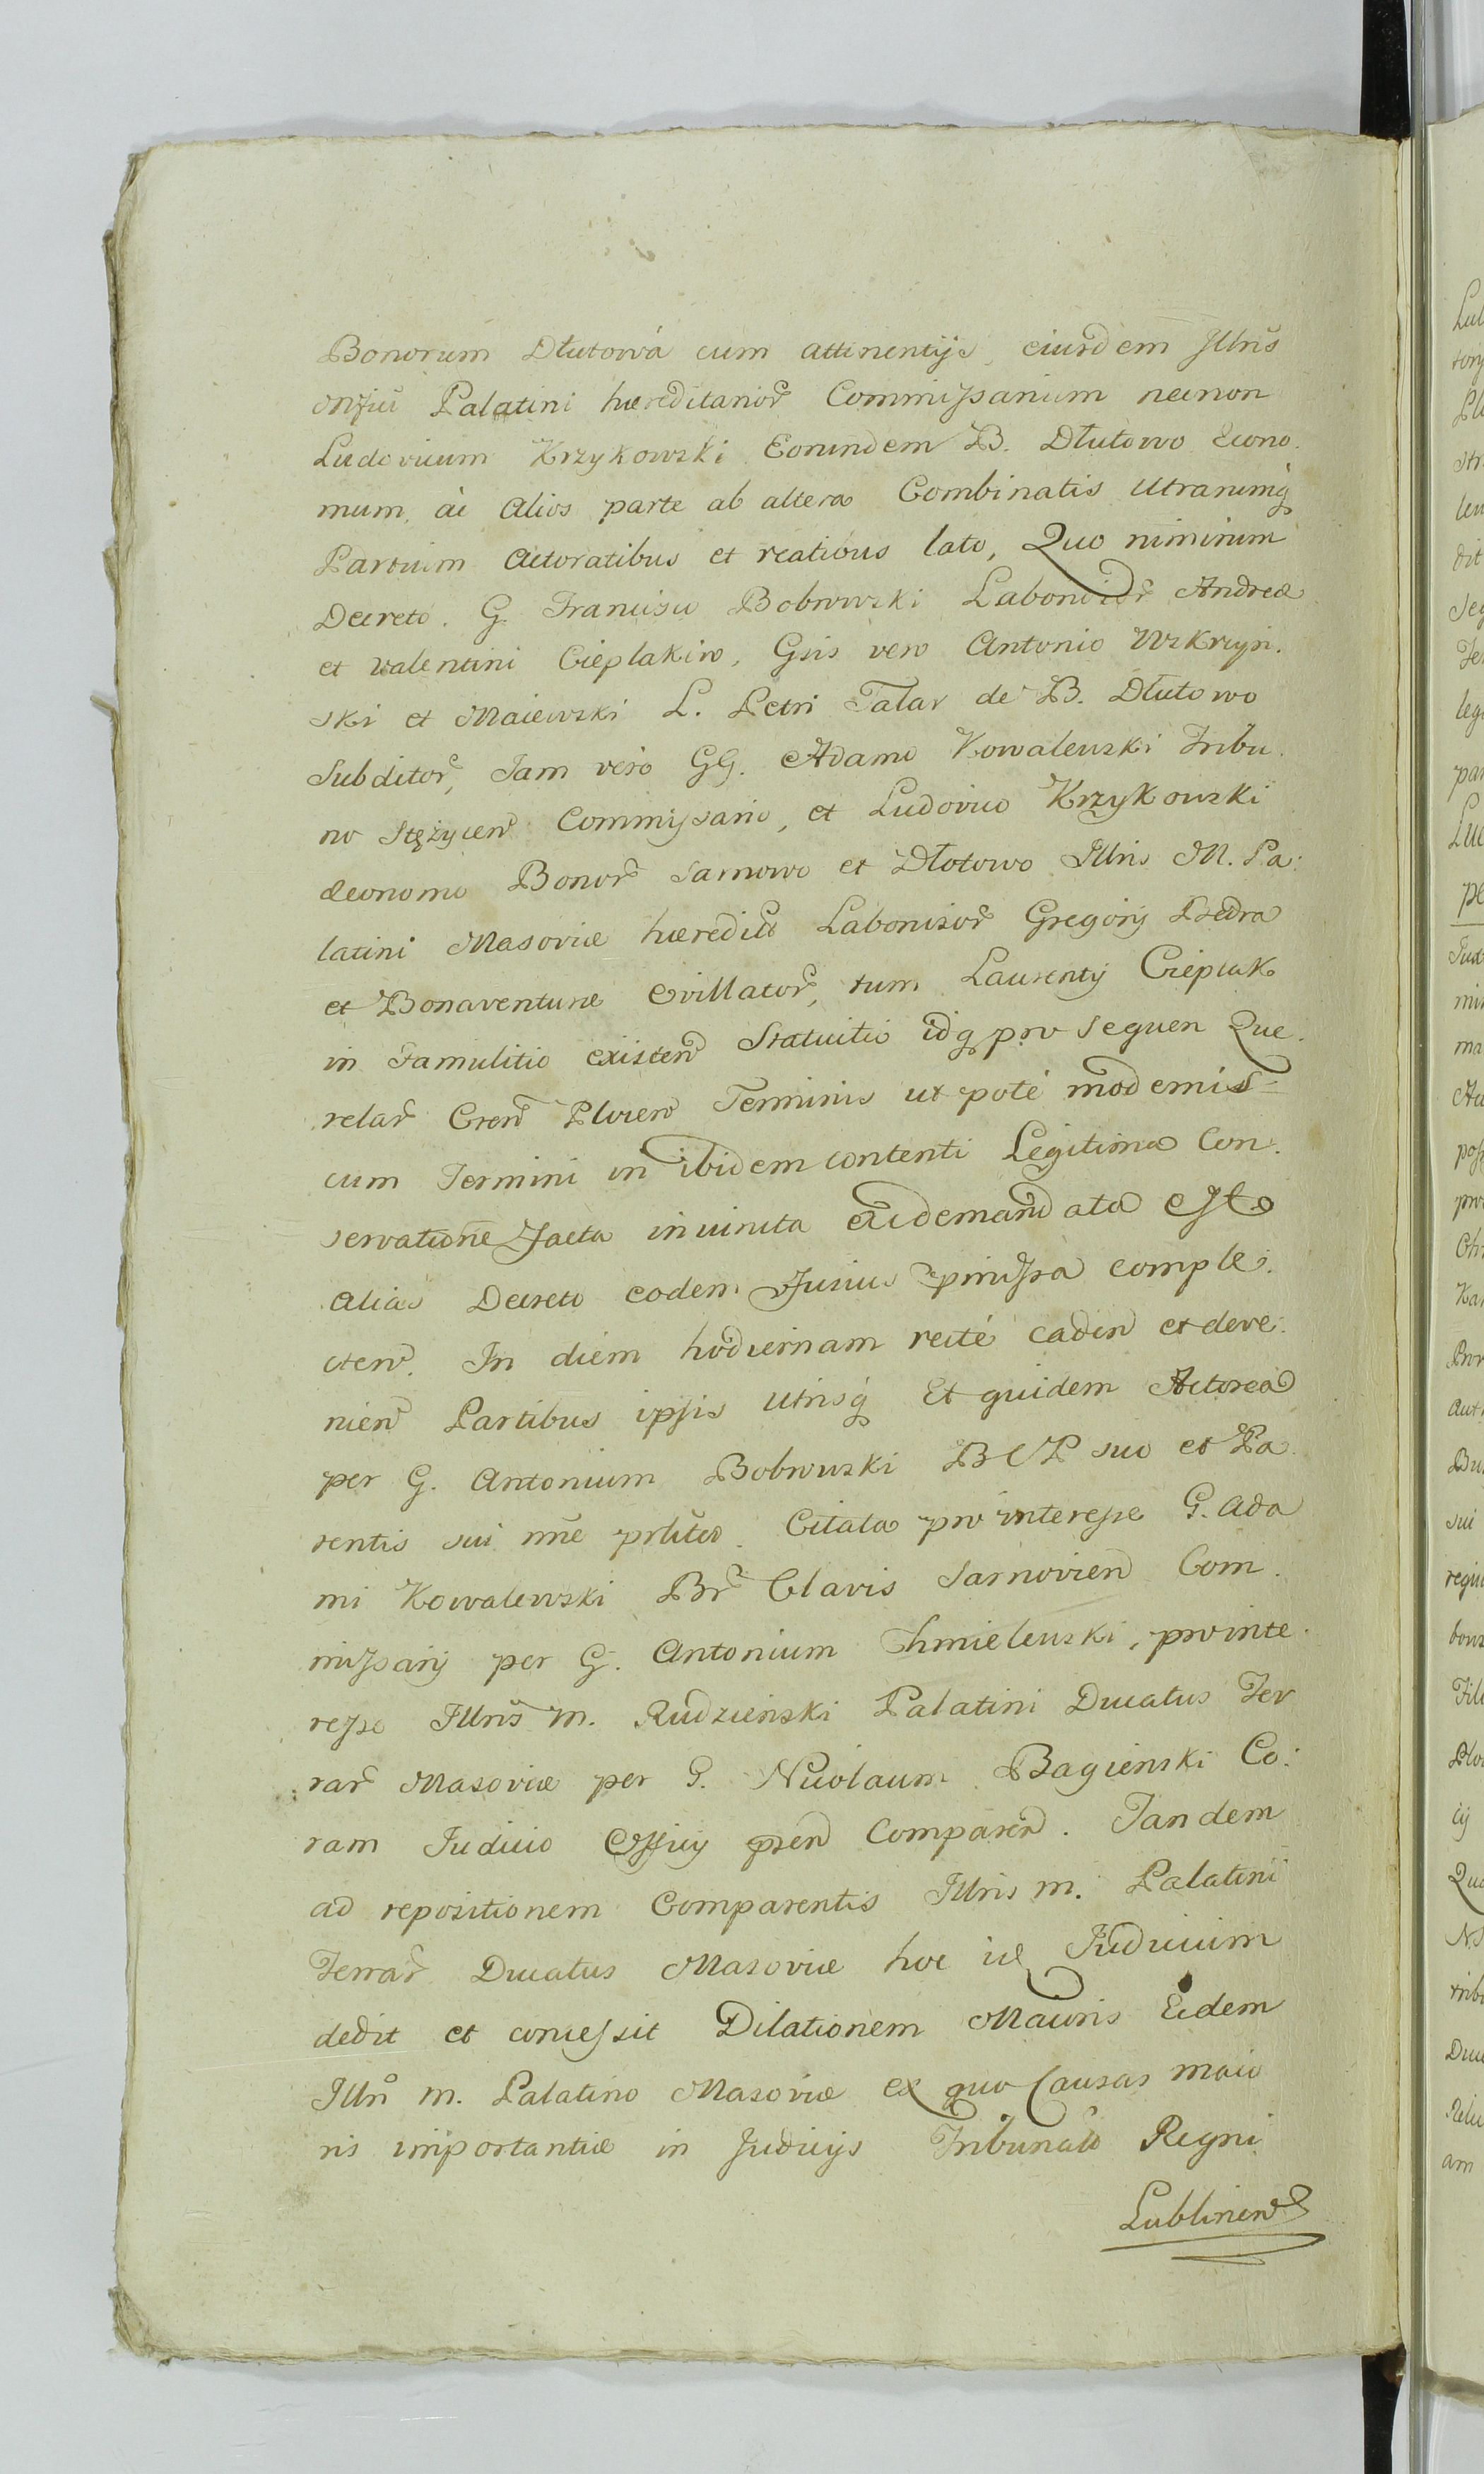 Bonorum Dłutowá cum attinentijs, eiusdem Jllris
Palatini hæreditarior Commissarium necnon
Ludovicum Krzykowski Eorundem B. Dłutowo Econo.
mum, ac Alios parte ab altera Combinatis Utrarumq
Partium Actoratibus et reatibus lato, Quo nimirum
Decreto. G. Francisco Bobrowski Laboriosor Andreæ
et Valentini Cieplakiw, Gsis vero Antonio
ski et Maiewski L. Petri Tatar de B. Dłutowo
Subditor, Jam vero GG. Adamo Kowalewski Tribu.
no Stężycen Commissario, et Ludovico Krzykowski
Œconomo Bonor Sarnowo et Dłotowo Jllris M. Pa:
latini Masoviæ hæredit Laboriosor Gregorij
et Bonaventuræ Ovillator, tum Laurentij Cieplak
in Famulitio existen Statuitio idq pro sequen Que.
relar Cren Plocen Terminis ut poté modernis
cum Termini in ibidem contenti Legitima Con.
servatione Facta iniuncta demandata est
alias Decreto eodem Fusius præmissa comple.
cten. In diem hodiernam recté caden et deve.
nien Partibus ipsis utrisq Et quidem Actorea
per G. Antonium Bobrowski BCP suo et Pa
rentis sui nne prliter. Citata pro interesse G. Ada
mi Kowalewski Br Clavis Sarnovien Com.
missarij per G. Antonium Chmielewski, pro inte.
resse Jllris M. Rudzieński Palatini Ducatus Ter
rar Masoviæ per G. Nicolaum Bagienski Co:
ram Judicio Officij pren Comparen. Tandem
ad repositionem Comparentis Jllris M. Palatini
Terrar Ducatus Masoviæ hoc Judicium
dedit et concessit Dilationem Maioris Eidem
Jllri M. Palatino Masoviæ ex quo Causas maio
ris importantiæ in Judicijs Tribunalis Regni
Lublinen